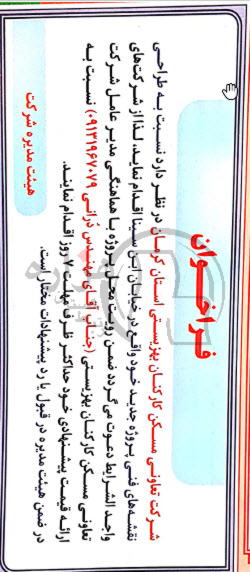 فراخوان
شرکت تعاونی مسکن کارکنان بهزیستی استان کرمان در نظر دارد نسبت به طراحی
نقشه‌های فنی پروژه جدید خود واقع در خیابان ابن سینا اقدام نماید، لذا از شرکت‌های
واجد الشرایط دعوت می‌گردد ضمن رویت محل پروژه با هماهنگی مدیر عامل شرکت
تعاونی مسکن کارکنان بهزیستی (جناب آقای مهندس دُرانی ۰۹۱۳۱۹۶۷۰۷۹) نسبت به
ارائه قیمت پیشنهادی خود حداکثر ظرف مهلت ۷ روز اقدام نمایند.
در ضمن هیئت مدیره در قبول یا رد پیشنهادات مختار است.
هیئت مدیره شرکت